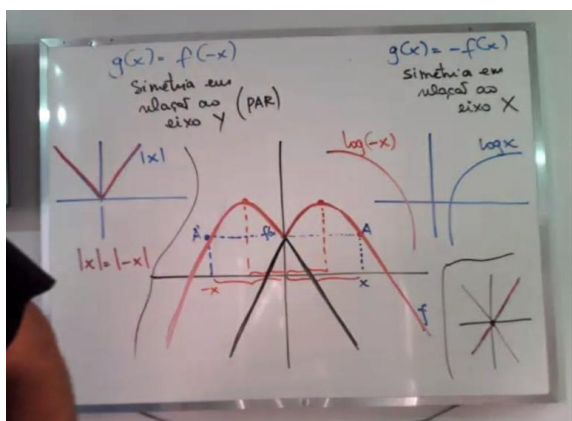 g(x) = f(-x)
Simétria em
relação ao
eixo Y (PAR)
g(x) = -f(x)
Simétria em
relação ao
eixo X
|x|
|x| = |-x|
log(-x)
log x
A'
A
-x
x
f